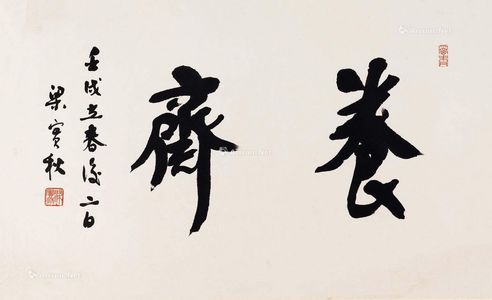 養齋
壬戌立春後二日
梁實秋